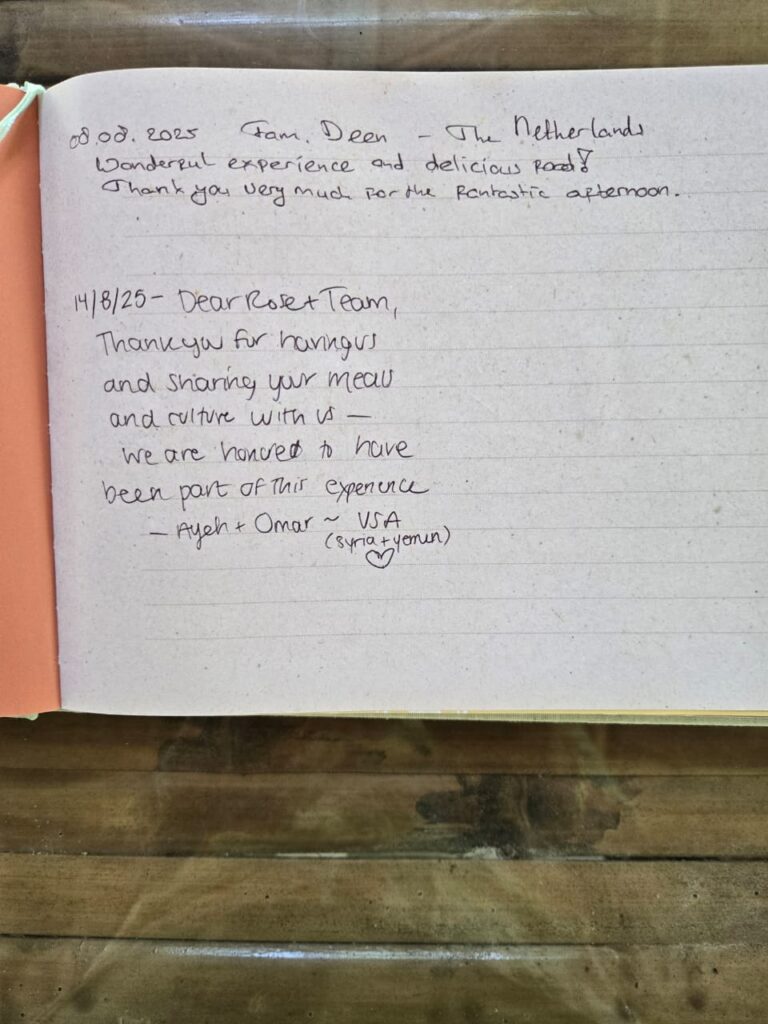 08.08.2025 Fam. Deen - The Netherlands
Wonderful experience and delicious food!
Thank you very much for the fantastic afternoon.
14/8/25 - Dear Rose + Team,
Thank you for having us
and sharing your meals
and culture with us —
we are honored to have
been part of this experience
— Ayeh + Omar ~ USA
(Syria + Yemen)